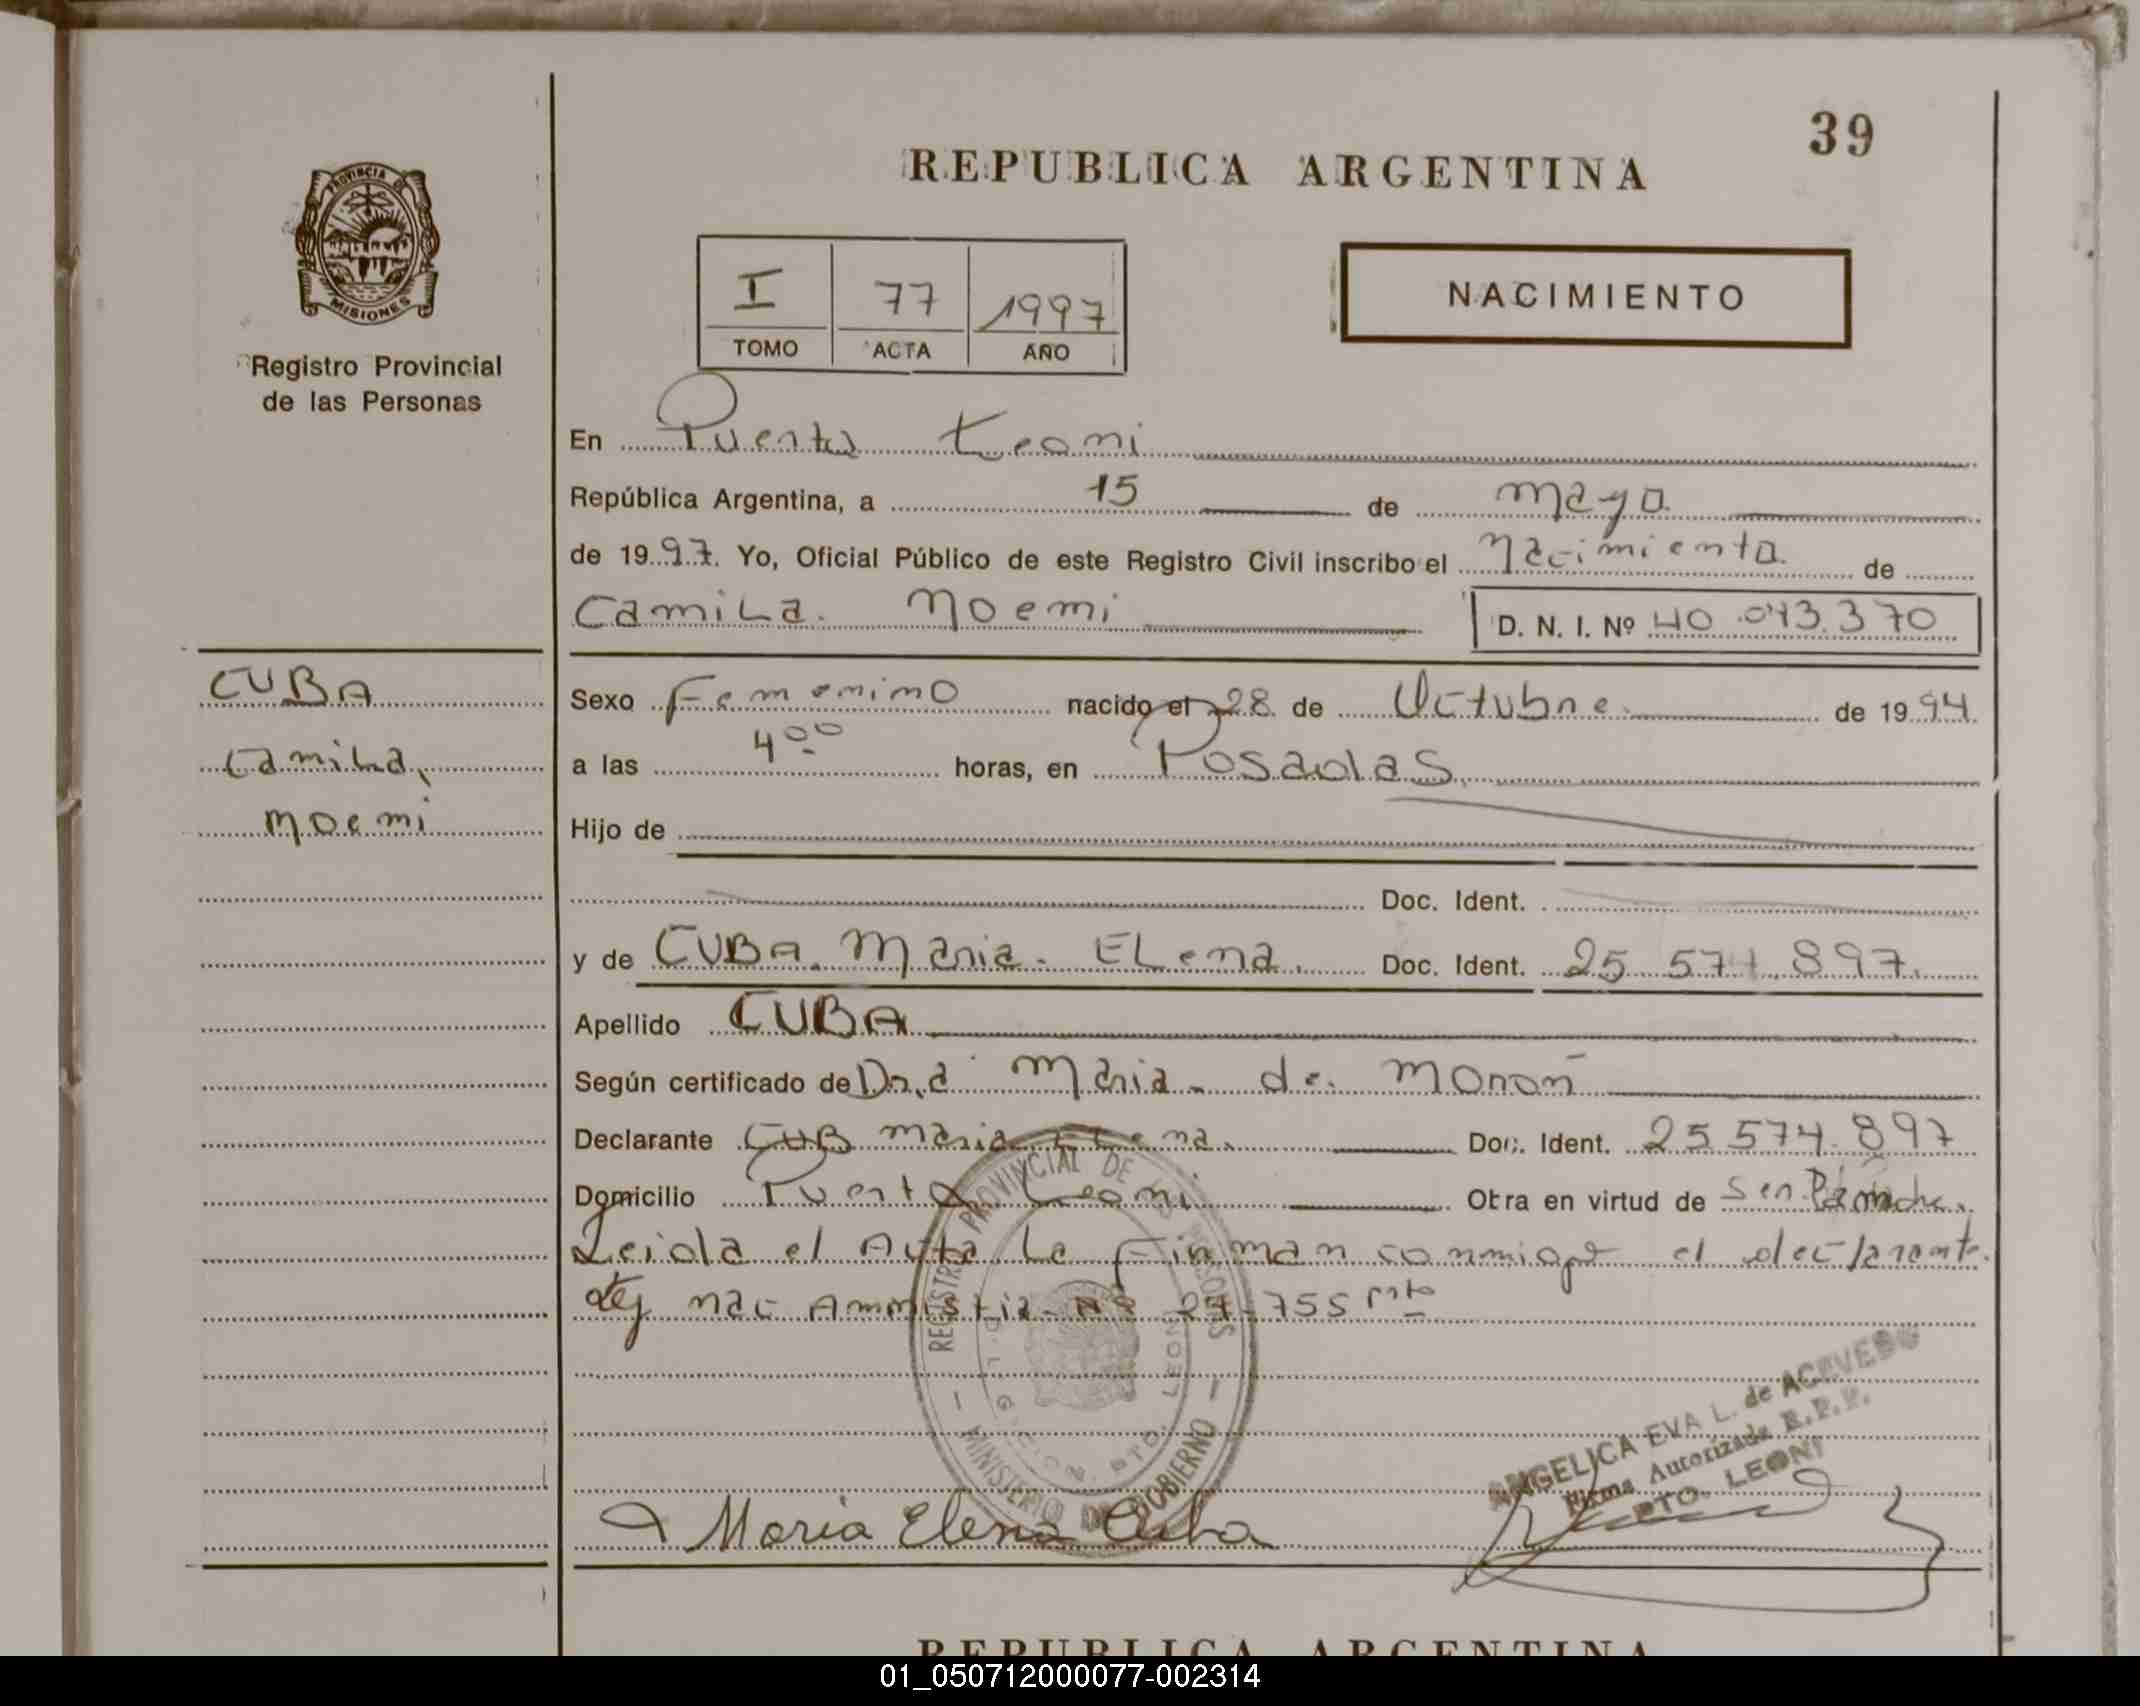 39
REPUBLICA ARGENTINA
PROVINCIA DE
MISIONES
Registro Provincial
de las Personas
I 77 1997
TOMO ACTA AÑO
NACIMIENTO
En Puerto Leoni
República Argentina, a 15 de mayo
de 1997. Yo, Oficial Público de este Registro Civil inscribo el Nacimiento de
Camila Noemi D. N. I. Nº 40.043.370
CUBA
Camila
Noemi
Sexo Femenino nacido el 28 de Octubre de 1994
a las 4⁰⁰ horas, en Posadas
Hijo de
Doc. Ident.
y de CUBA Maria Elena Doc. Ident. 25 574 897
Apellido CUBA
Según certificado de Dra Maria de Moron
Declarante CUB Maria Elena Doc. Ident. 25.574.897
Domicilio Puerto Leoni Obra en virtud de Ser la madre
Leida el Acta la Firman conmigo el declarante.
Ley Nac Amnistia Nº 24.755
REGISTRO PROVINCIAL DE LAS PERSONAS
MINISTERIO DE GOBIERNO
PTO. LEONI
ANGELICA EVA L. de ACEVEDO
Firma Autorizada R.P.P.
PTO. LEONI
Maria Elena Cuba
REPUBLICA ARGENTINA
01_050712000077-002314